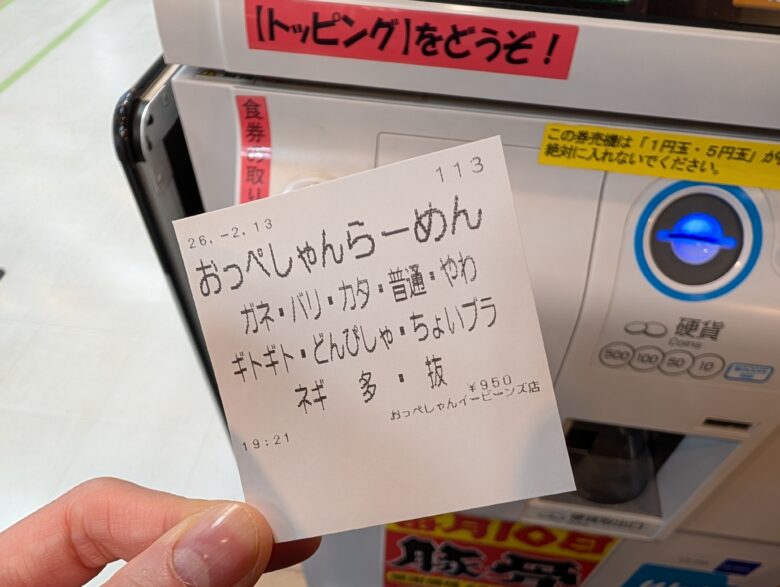 【トッピング】をどうぞ!
食券の取り
この券売機は「1円玉・5円玉」が
絶対に入れないでください。
113
26.-2.13
おっぺしゃんらーめん
ガネ・バリ・カタ・普通・やわ
ギトギト・どんぴしゃ・ちょいブラ
ネギ 多・抜
¥950
おっぺしゃんイービーンズ店
19:21
硬貨
Coins
500 100 50 10
硬貨取出口
月10日
豚骨